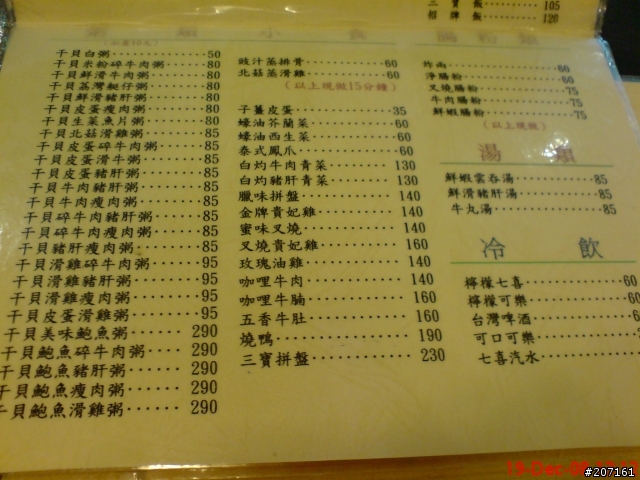 三寶飯 105
招牌飯 120
粥 類 小 食 腸粉類
干貝白粥 50
干貝米粉碎牛肉粥 80
干貝鮮滑牛肉粥 80
干貝荔灣艇仔粥 80
干貝鮮滑豬肝粥 80
干貝皮蛋瘦肉粥 80
干貝生菜魚片粥 80
干貝北菇滑雞粥 85
干貝皮蛋碎牛肉粥 85
干貝皮蛋滑牛粥 85
干貝皮蛋豬肝粥 85
干貝牛肉豬肝粥 85
干貝牛肉瘦肉粥 85
干貝碎牛肉豬肝粥 85
干貝碎牛肉瘦肉粥 85
干貝豬肝瘦肉粥 85
干貝滑雞碎牛肉粥 95
干貝滑雞豬肝粥 95
干貝滑雞瘦肉粥 95
干貝皮蛋滑雞粥 95
干貝美味鮑魚粥 290
干貝鮑魚碎牛肉粥 290
干貝鮑魚豬肝粥 290
干貝鮑魚瘦肉粥 290
干貝鮑魚滑雞粥 290
豉汁蒸排骨 60
北菇蒸滑雞 60
(以上現做15分鐘)
子薑皮蛋 35
蠔油芥蘭菜 60
蠔油西生菜 60
泰式鳳爪 60
白灼牛肉青菜 130
白灼豬肝青菜 130
臘味拼盤 140
金牌貴妃雞 140
蜜味叉燒 140
叉燒貴妃雞 160
玫瑰油雞 140
咖哩牛肉 140
咖哩牛腩 160
五香牛肚 160
燒鴨 190
三寶拼盤 230
炸兩 60
淨腸粉 60
叉燒腸粉 75
牛肉腸粉 75
鮮蝦腸粉 75
(以上現做)
湯 類
鮮蝦雲吞湯 85
鮮滑豬肝湯 85
牛丸湯 85
冷 飲
檸檬七喜 60
檸檬可樂 60
台灣啤酒 6
可口可樂 3
七喜汽水
#207161